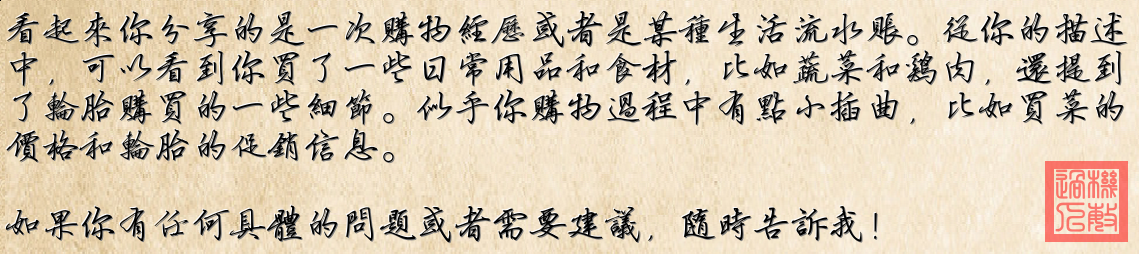 看起來你分享的是一次購物經歷或者是某種生活流水賬。從你的描述
中，可以看到你買了一些日常用品和食材，比如蔬菜和鷄肉，還提到
了輪胎購買的一些細節。似乎你購物過程中有點小插曲，比如買菜的
價格和輪胎的促銷信息。
如果你有任何具體的問題或者需要建議，隨時告訴我！